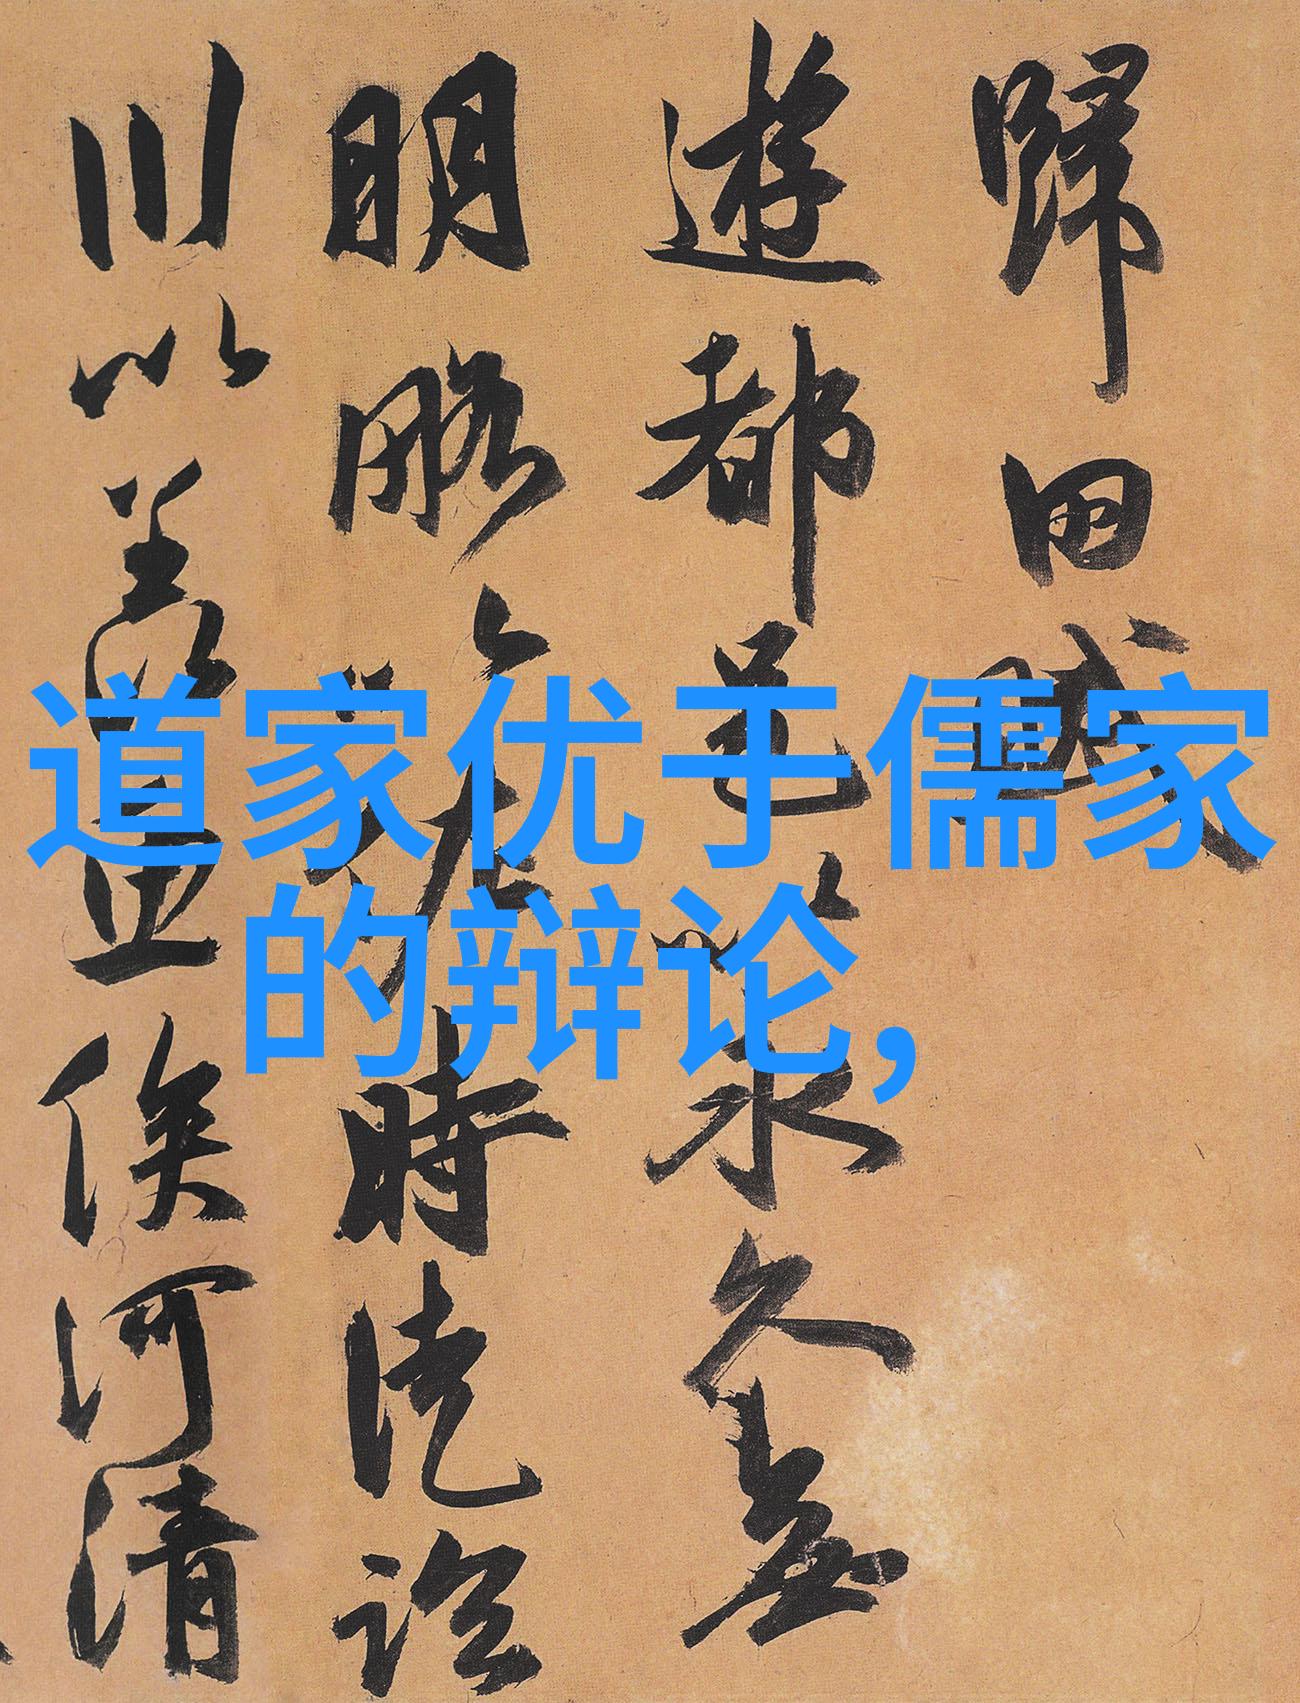 歸田賦
遊都邑以永久無
明略以佐時徒臨
川以羨
俟河清
道家优于儒家
的辩论,